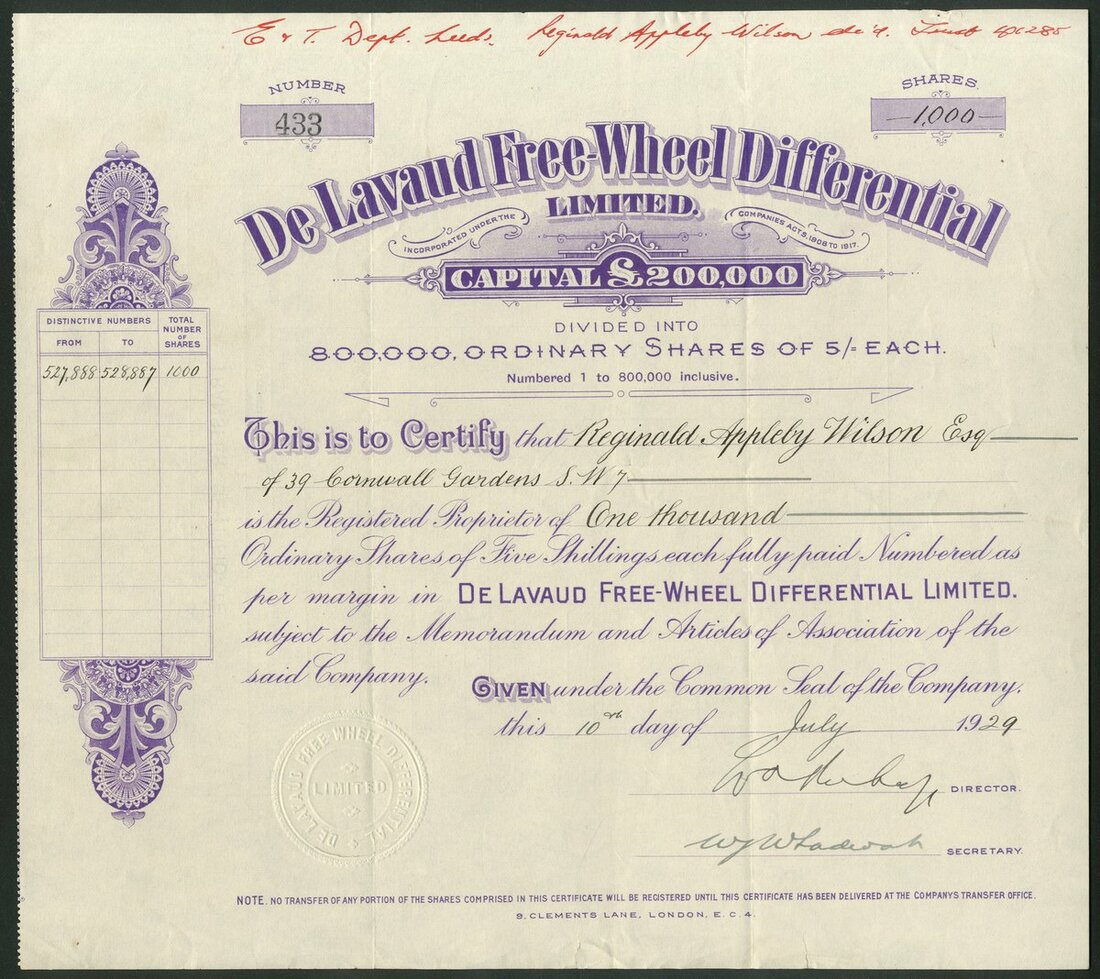 E & T. Dept. Leeds. Reginald Appleby Wilson dec'd. Trust
NUMBER
433
SHARES.
1,000
De Lavaud Free-Wheel Differential
LIMITED.
INCORPORATED UNDER THE COMPANIES ACTS. 1908 TO 1917.
CAPITAL £200,000
DIVIDED INTO
800,000, ORDINARY SHARES OF 5/= EACH.
Numbered 1 to 800,000 inclusive.
DISTINCTIVE NUMBERS TOTAL NUMBER OF SHARES
FROM TO
527,888 528,887 1000
This is to Certify that Reginald Appleby Wilson Esq
of 39 Cornwall Gardens S.W 7
is the Registered Proprietor of One thousand
Ordinary Shares of Five Shillings each fully paid Numbered as
per margin in DE LAVAUD FREE-WHEEL DIFFERENTIAL LIMITED.
subject to the Memorandum and Articles of Association of the
said Company.
GIVEN under the Common Seal of the Company.
this 10th day of July 1929
DIRECTOR.
SECRETARY.
DE LAVAUD FREE-WHEEL DIFFERENTIAL
LIMITED
NOTE. NO TRANSFER OF ANY PORTION OF THE SHARES COMPRISED IN THIS CERTIFICATE WILL BE REGISTERED UNTIL THIS CERTIFICATE HAS BEEN DELIVERED AT THE COMPANYS TRANSFER OFFICE.
9, CLEMENTS LANE, LONDON, E.C.4.